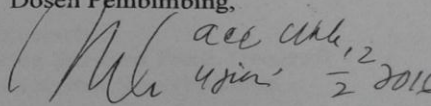 Dosen Pembimbing,
acc utk
ujian 12/2 2016